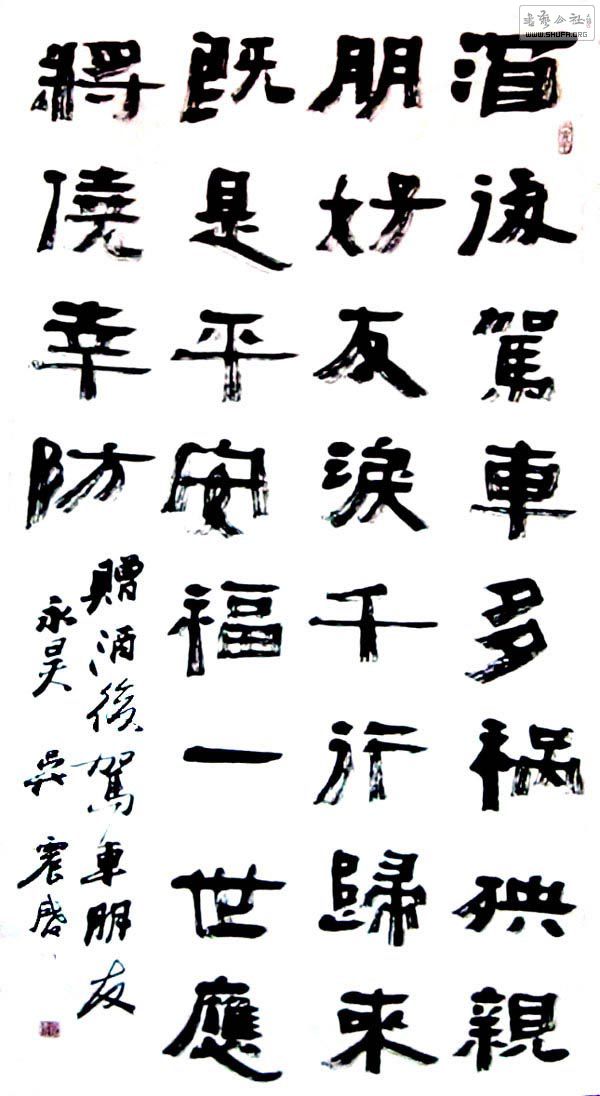 酒後駕車多祸殃親
朋好友淚千行歸来
既是平安福一世應
將僥幸防
贈酒後駕車朋友
永昊 吳震啓
書藝公社
WWW.SHUFA.ORG